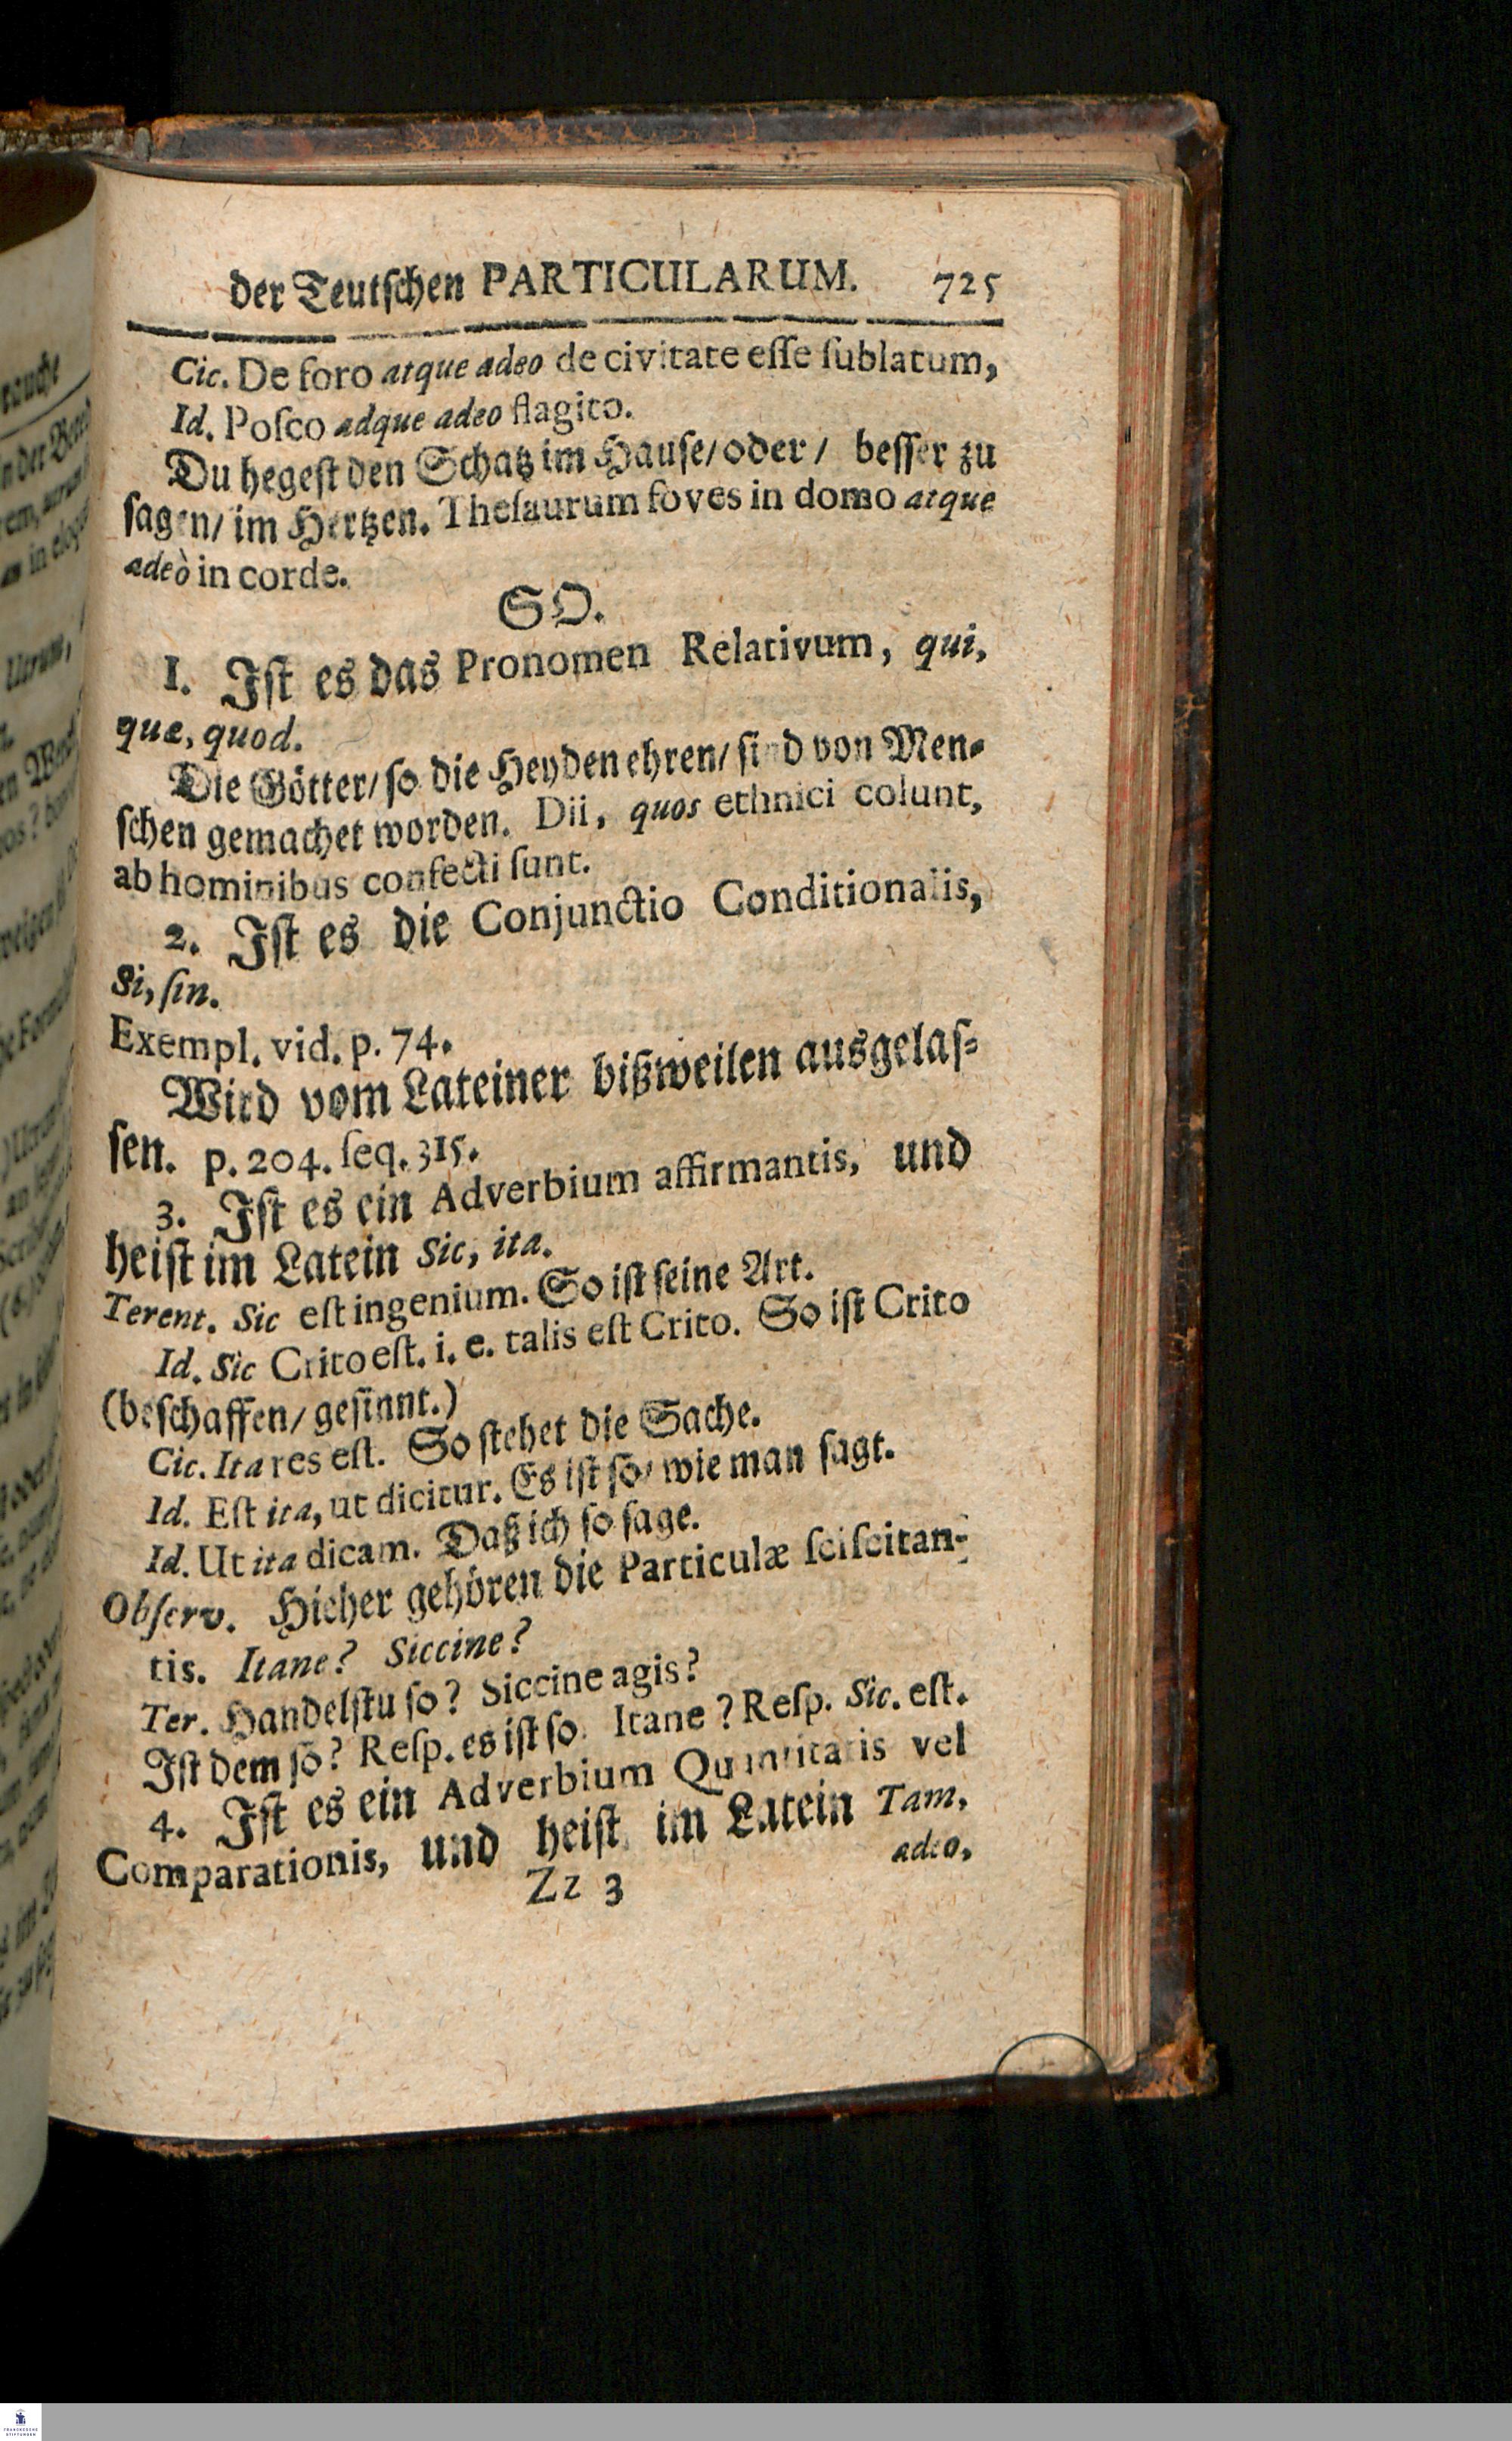 der Teutſchen PARTICULARUM. 725
Cic. De foro atque adeo de civitate eſſe ſublatum,
Id. Poſco adque adeo flagito.
Du hegeſt den Schatz im Hauſe/oder/ beſſer zu
ſagen/ im Hertzen. Theſaurum foves in domo atque
adeò in corde.
SO.
1. Iſt es das Pronomen Relativum, qui,
quæ, quod.
Die Götter/ ſo die Heyden ehren/ ſind von Men-
ſchen gemachet worden. Dii, quos ethnici colunt,
ab hominibus confecti ſunt.
2. Iſt es die Conjunctio Conditionalis,
Si, ſin.
Exempl. vid. p. 74.
Wird vom Lateiner bißweilen ausgelaſ-
ſen. p. 204. ſeq. 315.
3. Iſt es ein Adverbium affirmantis, und
heiſt im Latein Sic, ita.
Terent. Sic eſt ingenium. So iſt ſeine Art.
Id. Sic Crito eſt. i. e. talis eſt Crito. So iſt Crito
(beſchaffen/ geſinnt.)
Cic. Ita res eſt. So ſtehet die Sache.
Id. Eſt ita, ut dicitur. Es iſt ſo/ wie man ſagt.
Id. Ut ita dicam. Daß ich ſo ſage.
Obſerv. Hieher gehören die Particulæ ſciſcitan-
tis. Itane? Siccine?
Ter. Handelſtu ſo? Siccine agis?
Iſt dem ſo? Reſp. es iſt ſo. Itane? Reſp. Sic. eſt.
4. Iſt es ein Adverbium Quantitatis vel
Comparationis, und heiſt im Latein Tam,
adeo,
Zz 3
FRANCKESCHE
STIFTUNGEN